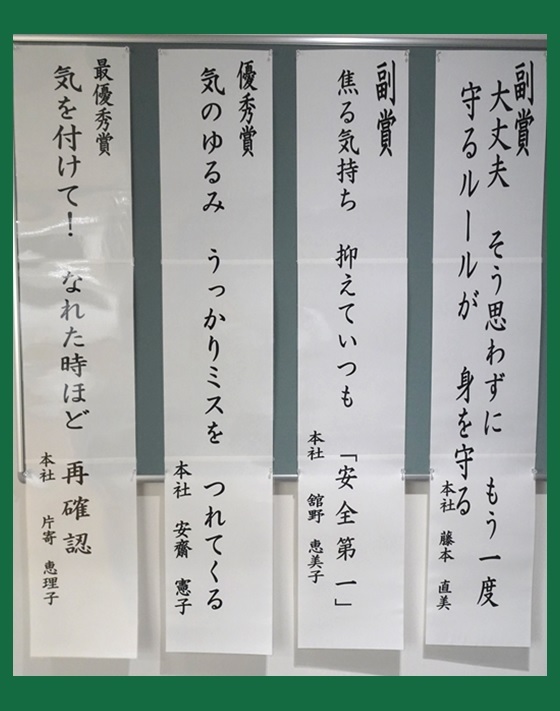 副賞
大丈夫　そう思わずに　もう一度
守るルールが　身を守る
本社　藤本　直美
副賞
焦る気持ち　抑えていつも　「安全第一」
本社　舘野　恵美子
優秀賞
気のゆるみ　うっかりミスを　つれてくる
本社　安齋　憲子
最優秀賞
気を付けて！　なれた時ほど　再確認
本社　片寄　恵理子